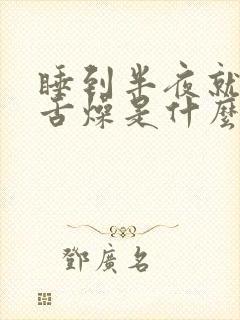 睡到半夜就
舌燥是什麼
鄧廣名